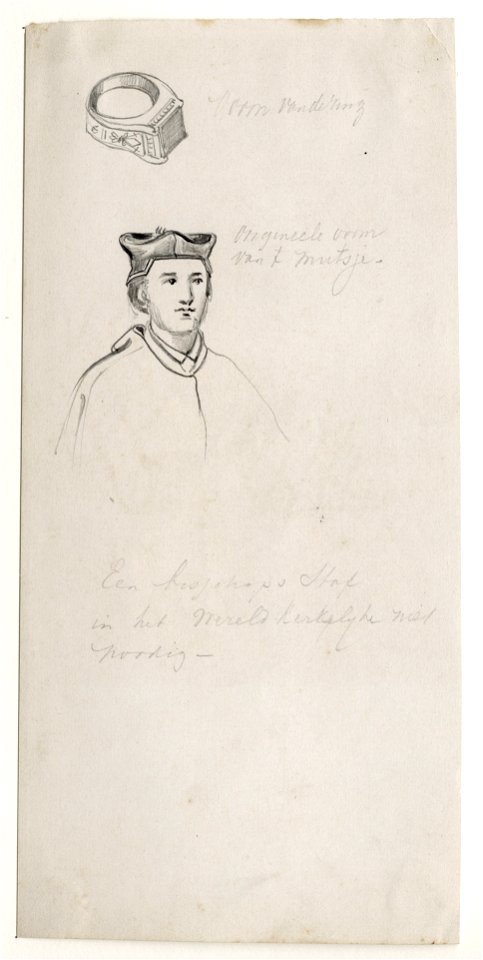 Vorm van de ring
Origineele vorm
van 't mutsje.
Een bisschops Staf
in het Wereldkerkelyke niet
noodig —